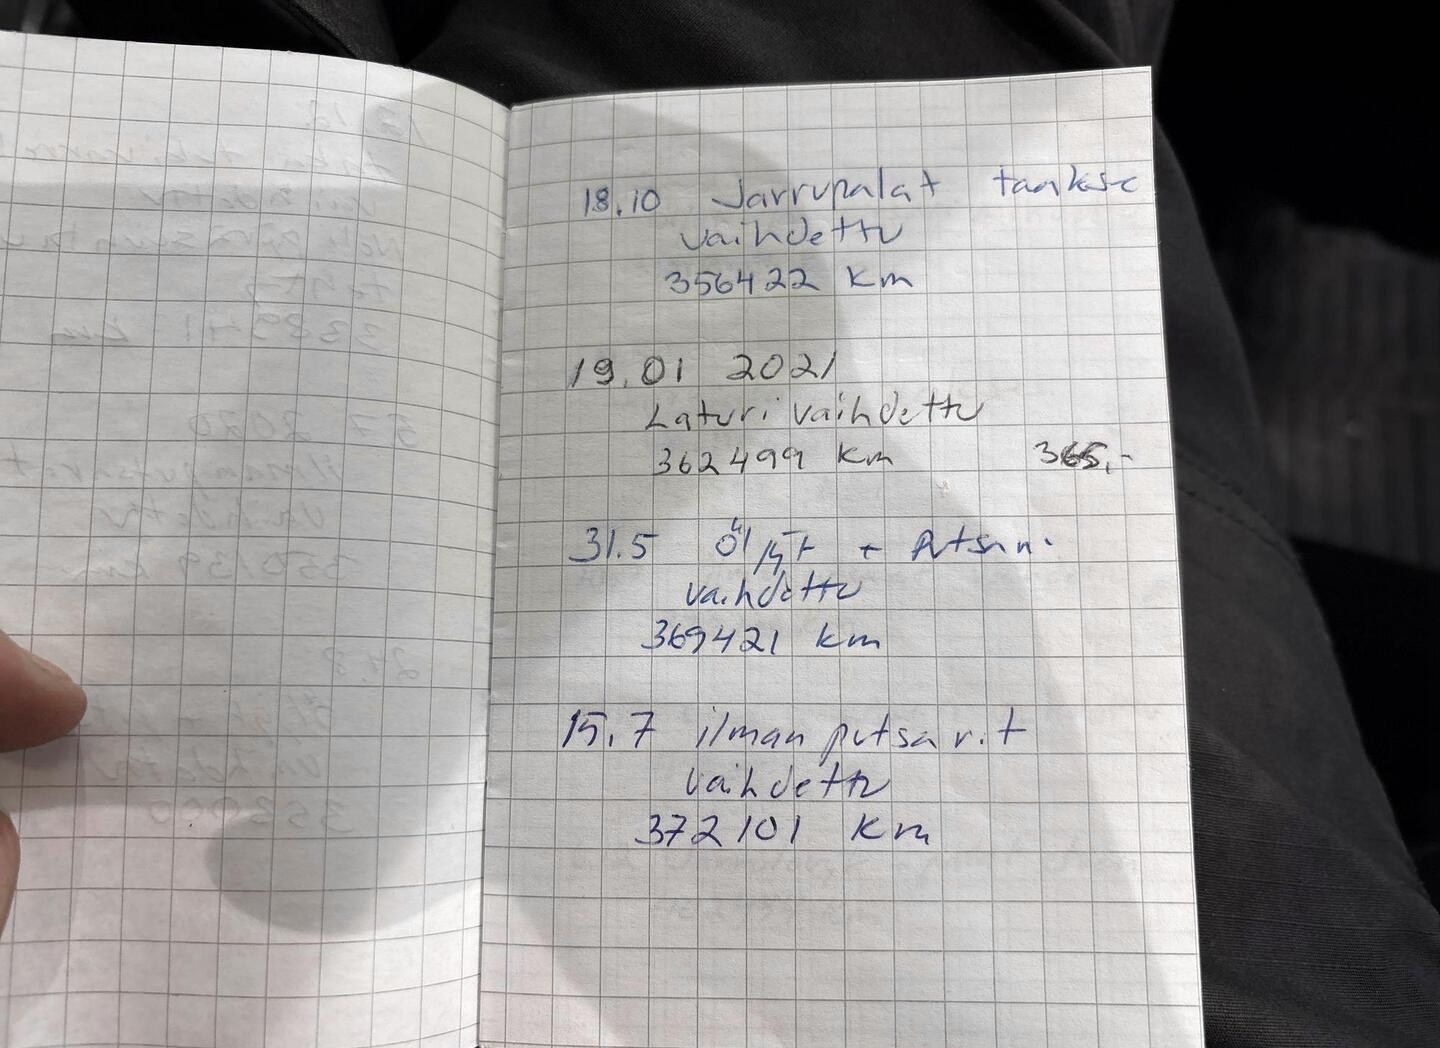 18.10 Jarrupalat taakse
vaihdettu
356422 km
19.01 2021
Laturi vaihdettu
362499 km 365,-
31.5 Öljyt +
vaihdettu
369421 km
15.7 ilman putsarit
vaihdettu
372101 km